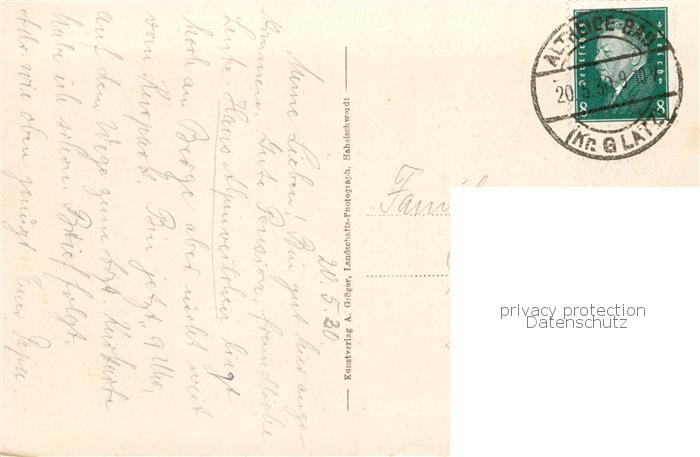 20.5.30
Meine Lieben! Bin gut hier ange-
kommen. Gute Pension, freundliche
Leute Haus Alpenveilchen liegt
hoch am Berge aber nicht weit
vom Kurpark. Bin jetzt, 9 Uhr,
auf dem Wege zum Arzt. Kurkarte
habe ich schon Brief folgt.
Euer Papa.
Konstverlag A. Gröger, Landschafts-Photograph, Habelschwerdt
ALTHEIDE-BAD
20.5.30.9-10V.
(Kr. GLATZ)
Deutsches Reich
8 8
Famil
privacy protection
Datenschutz